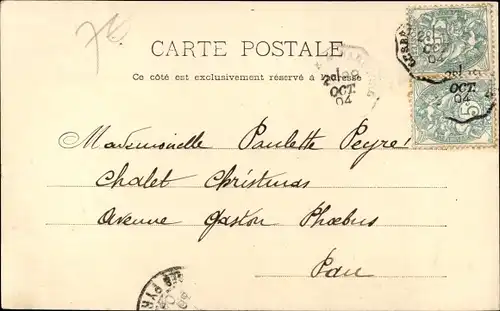 CARTE POSTALE
Ce côté est exclusivement réservé à l'adresse
OCT
04
OCT.
04
OCT
04
5
Mademoiselle Paulette Peyré
Chalet Christmas
Avenue Gaston Phœbus
Pau
PYR